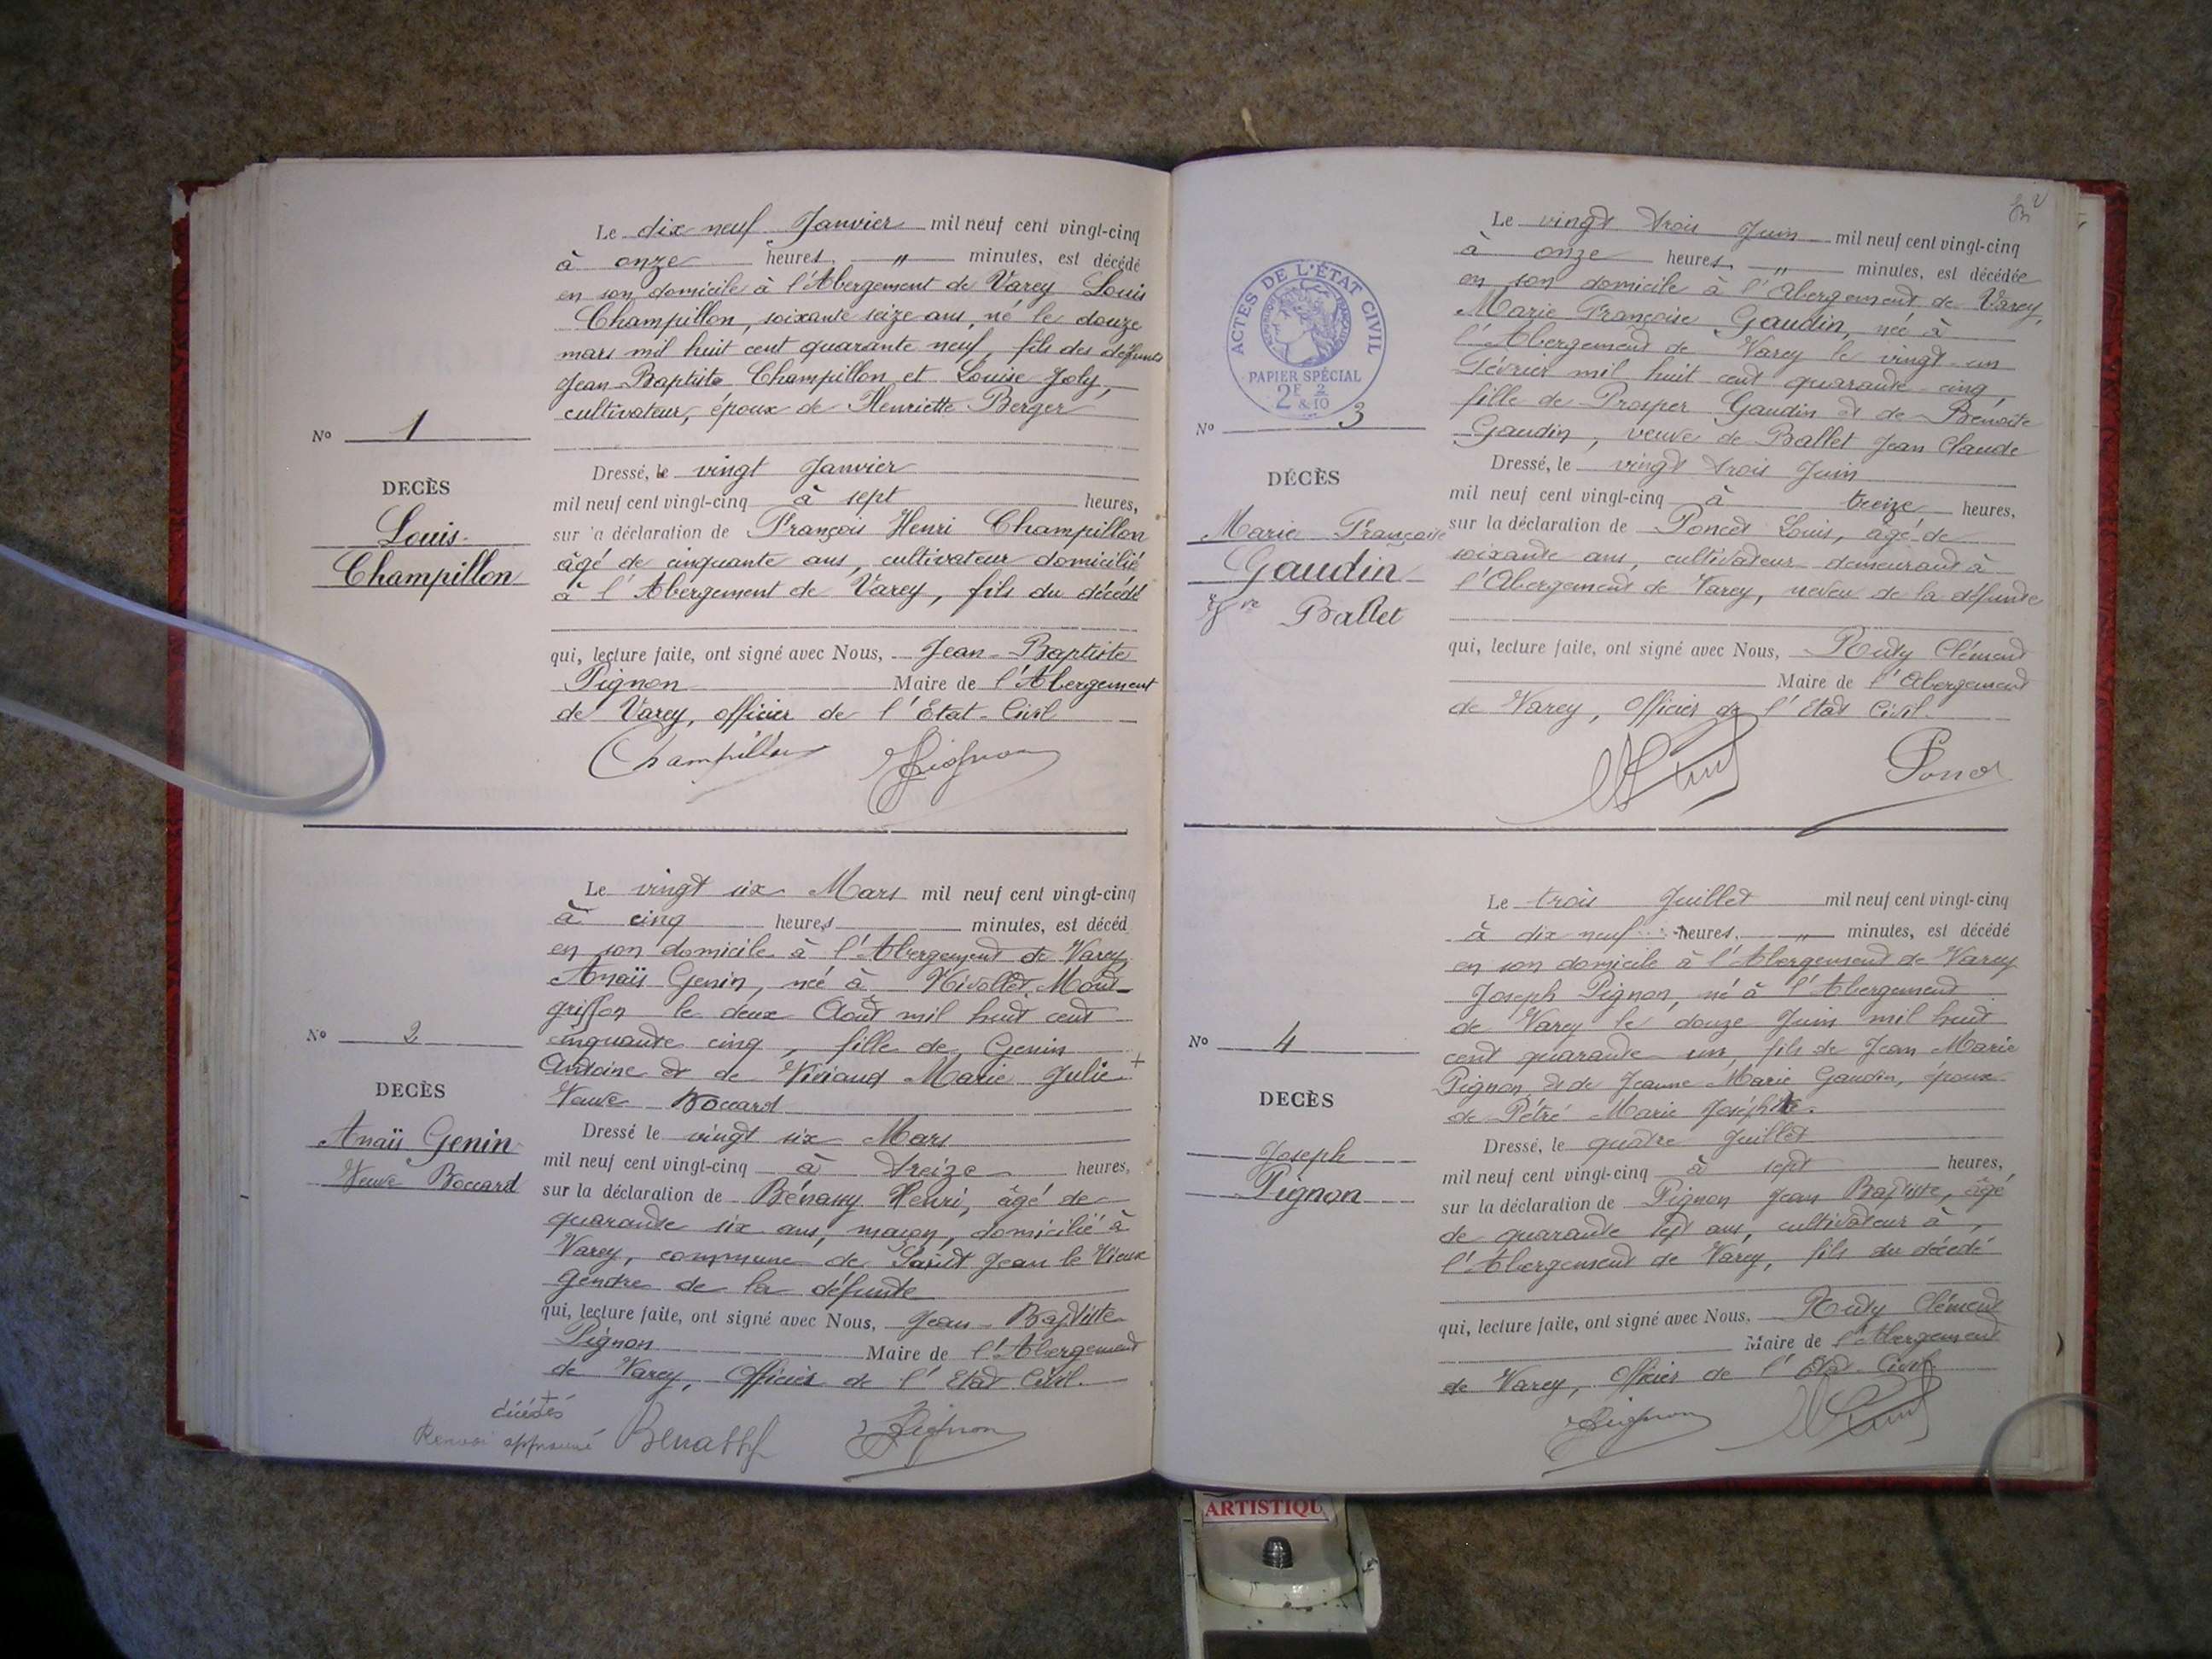 Le dix neuf Janvier mil neuf cent vingt-cinq
à onze heures, " minutes, est décédé
en son domicile à l'Abergement de Varey Louis
Champillon, soixante seize ans, né le douze
mars mil huit cent quarante neuf, fils des défunts
Jean Baptiste Champillon et Louise Joly,
cultivateur, époux de Henriette Berger
No 1
Dressé, le vingt Janvier
DECÈS
mil neuf cent vingt-cinq à sept heures,
Louis
sur la déclaration de François Henri Champillon
Champillon
âgé de cinquante ans, cultivateur domicilié
à l'Abergement de Varey, fils du décédé
qui, lecture faite, ont signé avec Nous, Jean-Baptiste
Pignon Maire de l'Abergement
de Varey, officier de l'Etat-Civil
Champillon Pignon
Le vingt six Mars mil neuf cent vingt-cinq
à cinq heures minutes, est décéd
en son domicile à l'Abergement de Varey
Anaïs Genin, née à Nivollet Mont-
griffon le deux Août mil huit cent
cinquante cinq, fille de Genin
No 2
Antoine et de Marie Julie +
Veuve Boccard
DECÈS
Dressé le vingt six Mars
Anaïs Genin
mil neuf cent vingt-cinq à treize heures,
Veuve Boccard
sur la déclaration de Bénassy Henri, âgé de
quarante six ans, maçon, domicilié à
Varey, commune de Saint Jean le Vieux
gendre de la défunte
qui, lecture faite, ont signé avec Nous, Jean-Baptiste
Pignon Maire de l'Abergement
de Varey, Officier de l'Etat Civil.
+ décédés
Renvoi approuvé Benassy Pignon
2
Le vingt trois Juin mil neuf cent vingt-cinq
à onze heures, " minutes, est décédée
en son domicile à l'Abergement de Varey,
Marie Françoise Gaudin, née à
l'Abergement de Varey le vingt-un
Février mil huit cent quarante-cinq,
fille de Prosper Gaudin et de Benoite
Gaudin, veuve de Ballet Jean Claude
ACTES DE L'ÉTAT CIVIL
RÉPUBLIQUE FRANÇAISE
PAPIER SPÉCIAL
2F & 2/10
No 3
Dressé, le vingt trois Juin
DÉCÈS
mil neuf cent vingt-cinq à treize heures,
Marie Françoise
sur la déclaration de Poncet Louis, âgé de
Gaudin
soixante ans, cultivateur demeurant à
Vve Ballet
l'Abergement de Varey, neveu de la défunte
qui, lecture faite, ont signé avec Nous, Rudy Clément
Maire de l'Abergement
de Varey, Officier de l'Etat Civil.
Poncet
Le trois Juillet mil neuf cent vingt-cinq
à dix neuf heures, " minutes, est décédé
en son domicile à l'Abergement de Varey
Joseph Pignon, né à l'Abergement
de Varey le douze Juin mil huit
cent quarante-un, fils de Jean Marie
No 4
Pignon et de Jeanne-Marie Gaudin, époux
de Pétré Marie Joséphte.
DECÈS
Dressé, le quatre Juillet
Joseph
mil neuf cent vingt-cinq à sept heures,
Pignon
sur la déclaration de Pignon Jean Baptiste, âgé
de quarante sept ans, cultivateur à,
l'Abergement de Varey, fils du décédé
qui, lecture faite, ont signé avec Nous, Rudy Clément
Maire de l'Abergement
de Varey, Officier de l'Etat Civil.
Pignon
ARTISTIQU